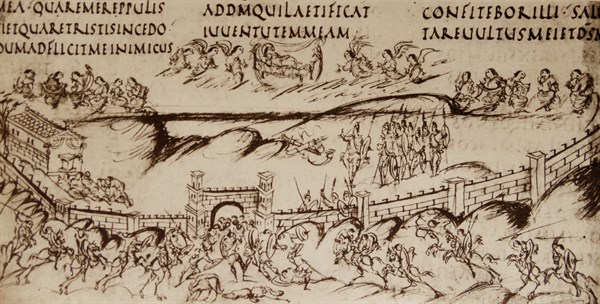 MEA·QUAREMEREPPULIS
TIETQUARETRISTISINCEDO
DUMADFLICITMEINIMICUS
ADDMQUILAETIFICAT
IUUENTUTEMMEAM
CONFITEBORILLI·SALU
TAREUULTUSMEIETDSM